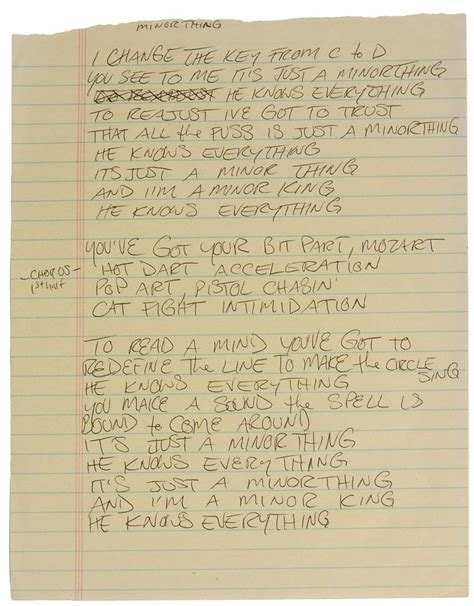 MINOR THING
I CHANGE THE KEY FROM C to D
YOU SEE TO ME IT'S JUST A MINORTHING
HE KNOWS EVERYTHING
TO REAJUST I'VE GOT TO TRUST
THAT ALL the FUSS IS JUST A MINORTHING
HE KNOWS EVERYTHING
ITS JUST A MINOR THING
AND I'M A MINOR KING
HE KNOWS EVERYTHING
YOU'VE GOT YOUR BIT PART, MOZART
-CHORUS- HOT DART ACCELERATION
1st half POP ART, PISTOL CHASIN'
CAT FIGHT INTIMIDATION
TO READ A MIND YOU'VE GOT TO
REDEFINE the LINE TO MAKE the CIRCLE
SING
HE KNOWS EVERYTHING
YOU MAKE A SOUND the SPELL IS
BOUND to COME AROUND
IT'S JUST A MINOR THING
HE KNOWS EVERYTHING
IT'S JUST A MINORTHING
AND I'M A MINOR KING
HE KNOWS EVERYTHING